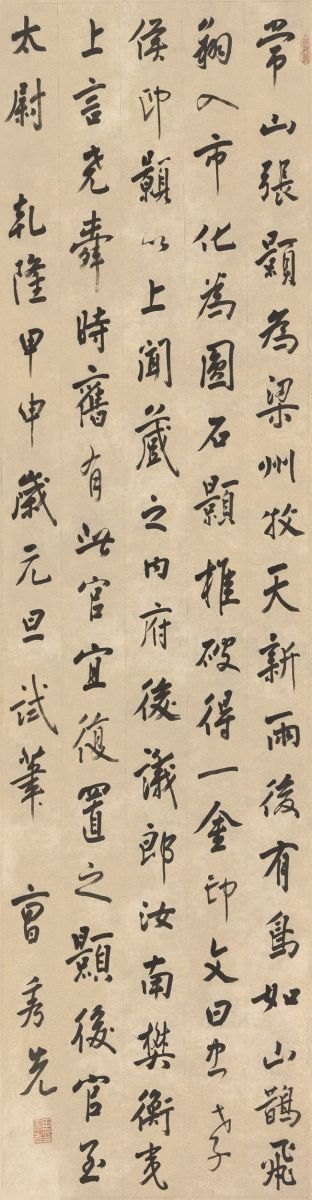 常山張顥為梁州牧天新雨後有鳥如山鵲飛
翔入市化為圓石顥椎破得一金印文曰忠孝
侯印顥以上聞藏之内府後議郎汝南樊衡夷
上言堯舜時舊有此官宜復置之顥後官至
太尉 乾隆甲申歲元旦試筆 曹秀先